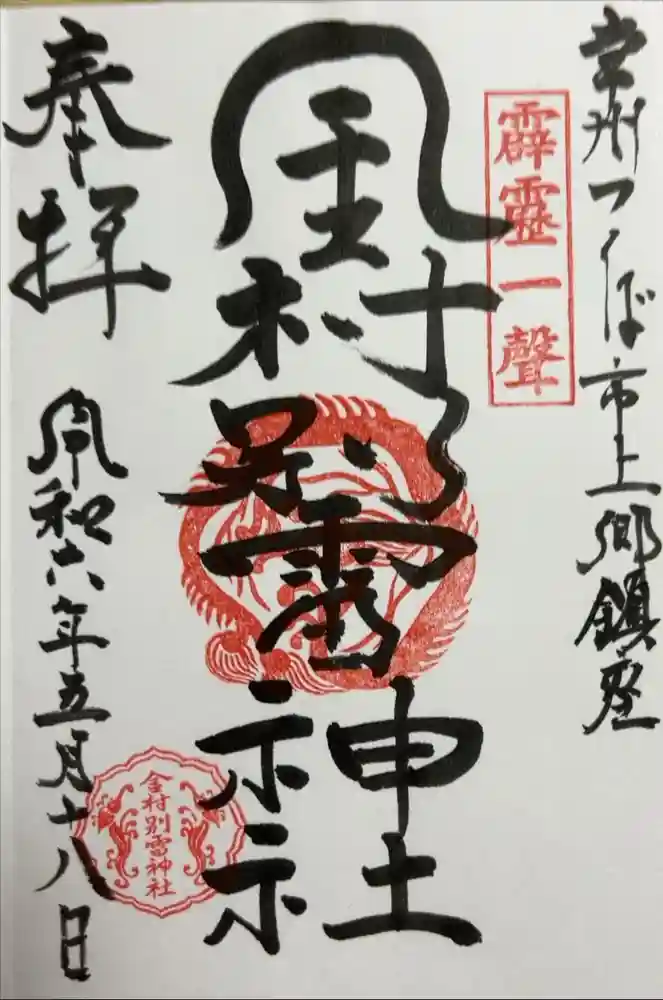 常州つくば市上郷鎮座
霹靂一聲
金村別雷神社
奉拝
令和六年五月十八日
金村別雷神社